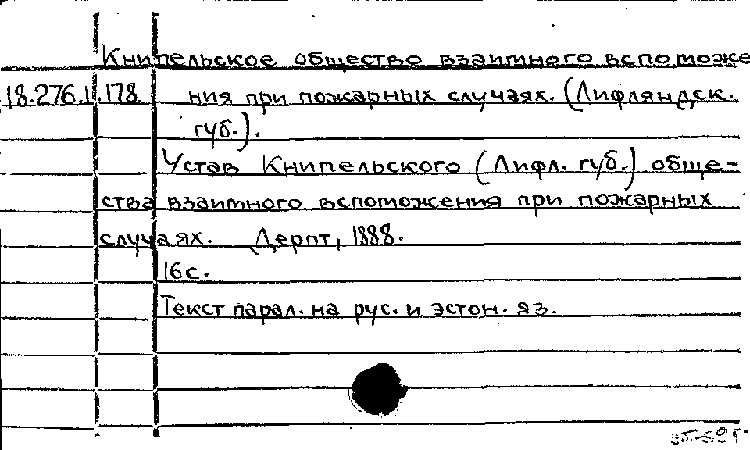 Книпельское общество взаимного вспоможе
18.276.1.178 ния при пожарных случаях. (Лифляндск.
губ.).
Устав Книпельского (Лифл. губ.) обще-
ства взаимного вспоможения при пожарных
случаях. Дерпт, 1888.
16 с.
Текст парал. на рус. и эстон. яз.